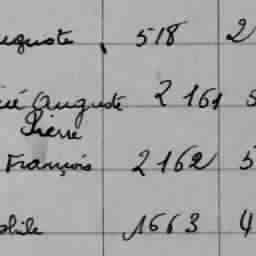 Auguste 518 2
Auguste 2 161 5
Pierre
François 2162 5
1663 4